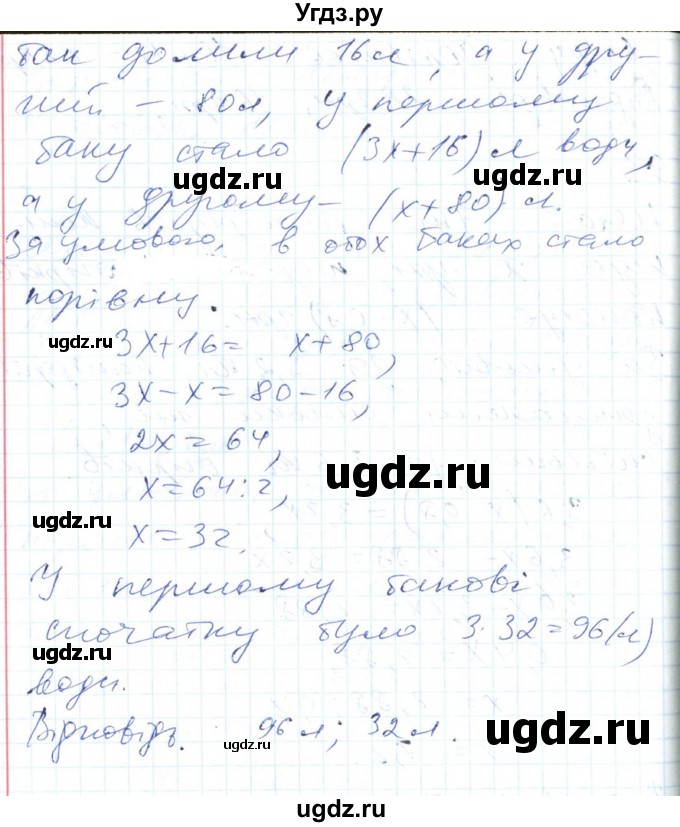 Угдз.ру
бак долили 16 л, а у дру-
гий – 80 л, У першому
баку стало (3x+16) л води,
а у другому – (x+80) л.
За умовою, в обох баках стало
порівну.
3x+16= x+80,
3x-x=80-16,
2x=64,
x=64:2,
x=32,
У першому бакові
спочатку було 3·32=96(л)
води.
Відповідь. 96 л; 32 л.
ugdz.ru
ugdz.ru
ugdz.ru
ugdz.ru
ugdz.ru
ugdz.ru
ugdz.ru
ugdz.ru
ugdz.ru
ugdz.ru
ugdz.ru